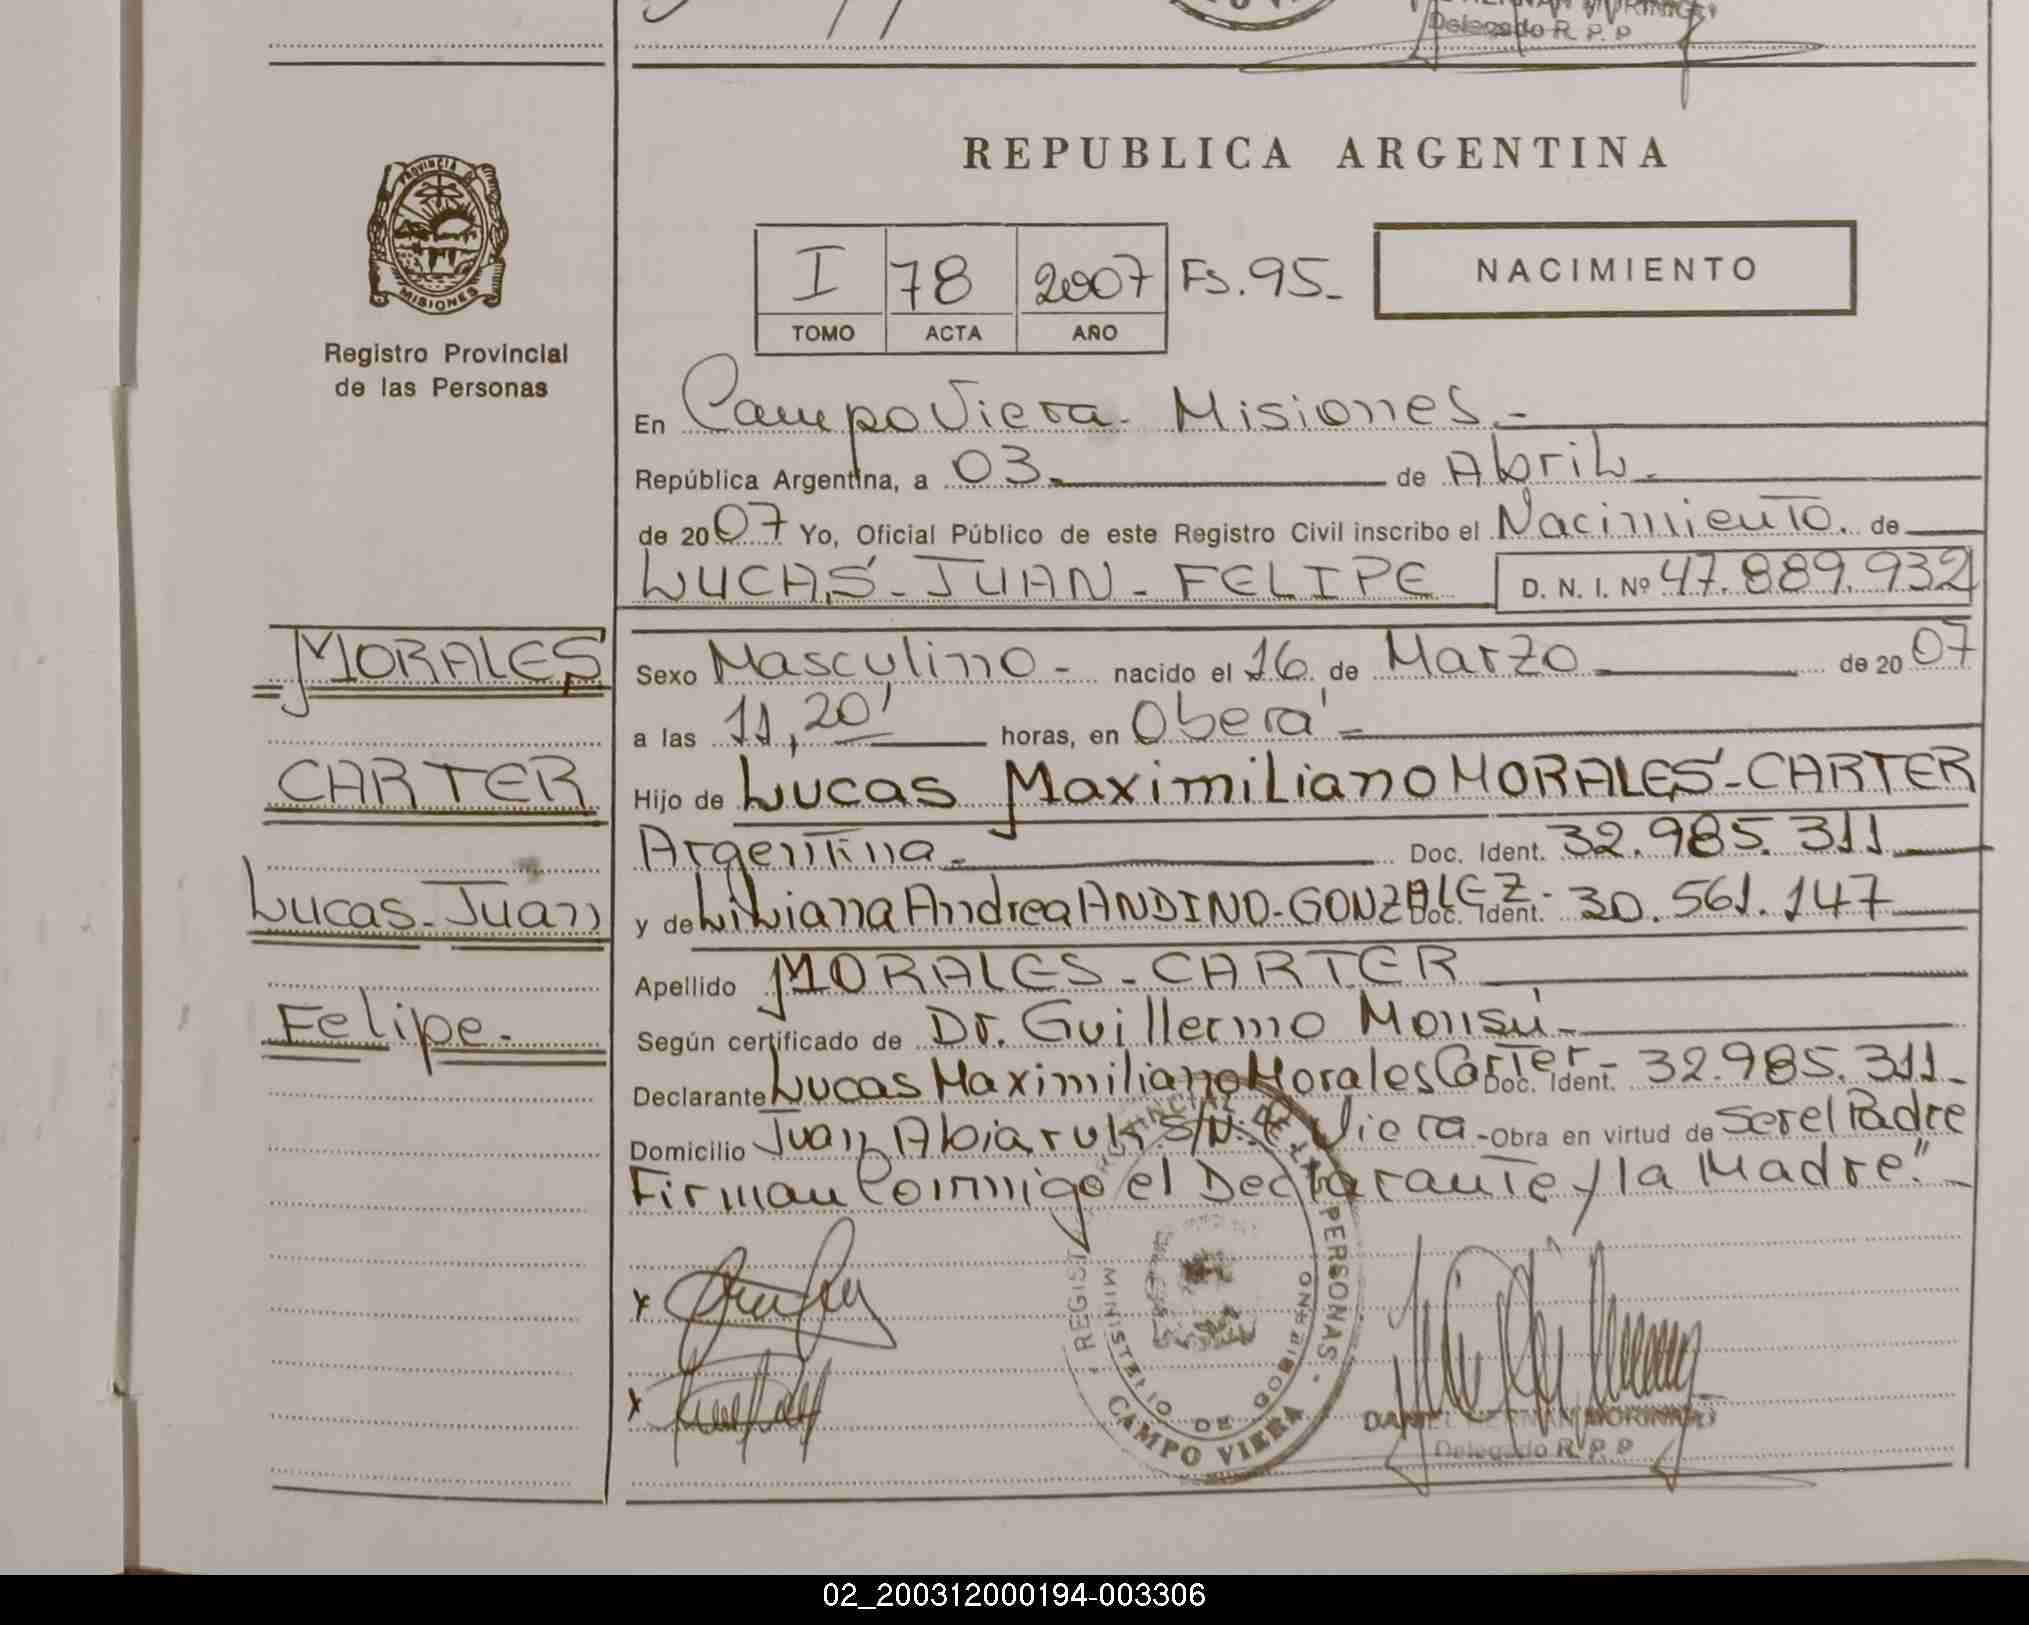 Delegado R. P. P
PROVINCIA DE
MISIONES
Registro Provincial
de las Personas
REPUBLICA ARGENTINA
I 78 2007 Fs. 95-
TOMO ACTA AÑO
NACIMIENTO
En Campo Viera - Misiones -
República Argentina, a 03 de Abril -
de 2007 Yo, Oficial Público de este Registro Civil inscribo el Nacimiento de
LUCAS - JUAN - FELIPE D. N. I. Nº 47.889.932
MORALES
CARTER
Lucas - Juan
Felipe -
Sexo Masculino - nacido el 16 de Marzo de 2007
a las 11,20' horas, en Oberá -
Hijo de Lucas Maximiliano MORALES - CARTER
Argentina - Doc. Ident. 32.985.311
y de Liliana Andrea ANDINO - GONZALEZ - Doc. Ident. 30.561.147
Apellido MORALES - CARTER
Según certificado de Dr. Guillermo Monsú -
Declarante Lucas Maximiliano Morales Carter - Doc. Ident. 32.985.311 -
Domicilio Juan Abiaruk S/N. C. Viera - Obra en virtud de ser el Padre
Firman Conmigo el Declarante y la Madre." -
x
x
REGISTRO PROVINCIAL DE LAS PERSONAS -
MINISTERIO DE GOBIERNO
CAMPO VIERA
Delegado R. P. P
02_200312000194-003306